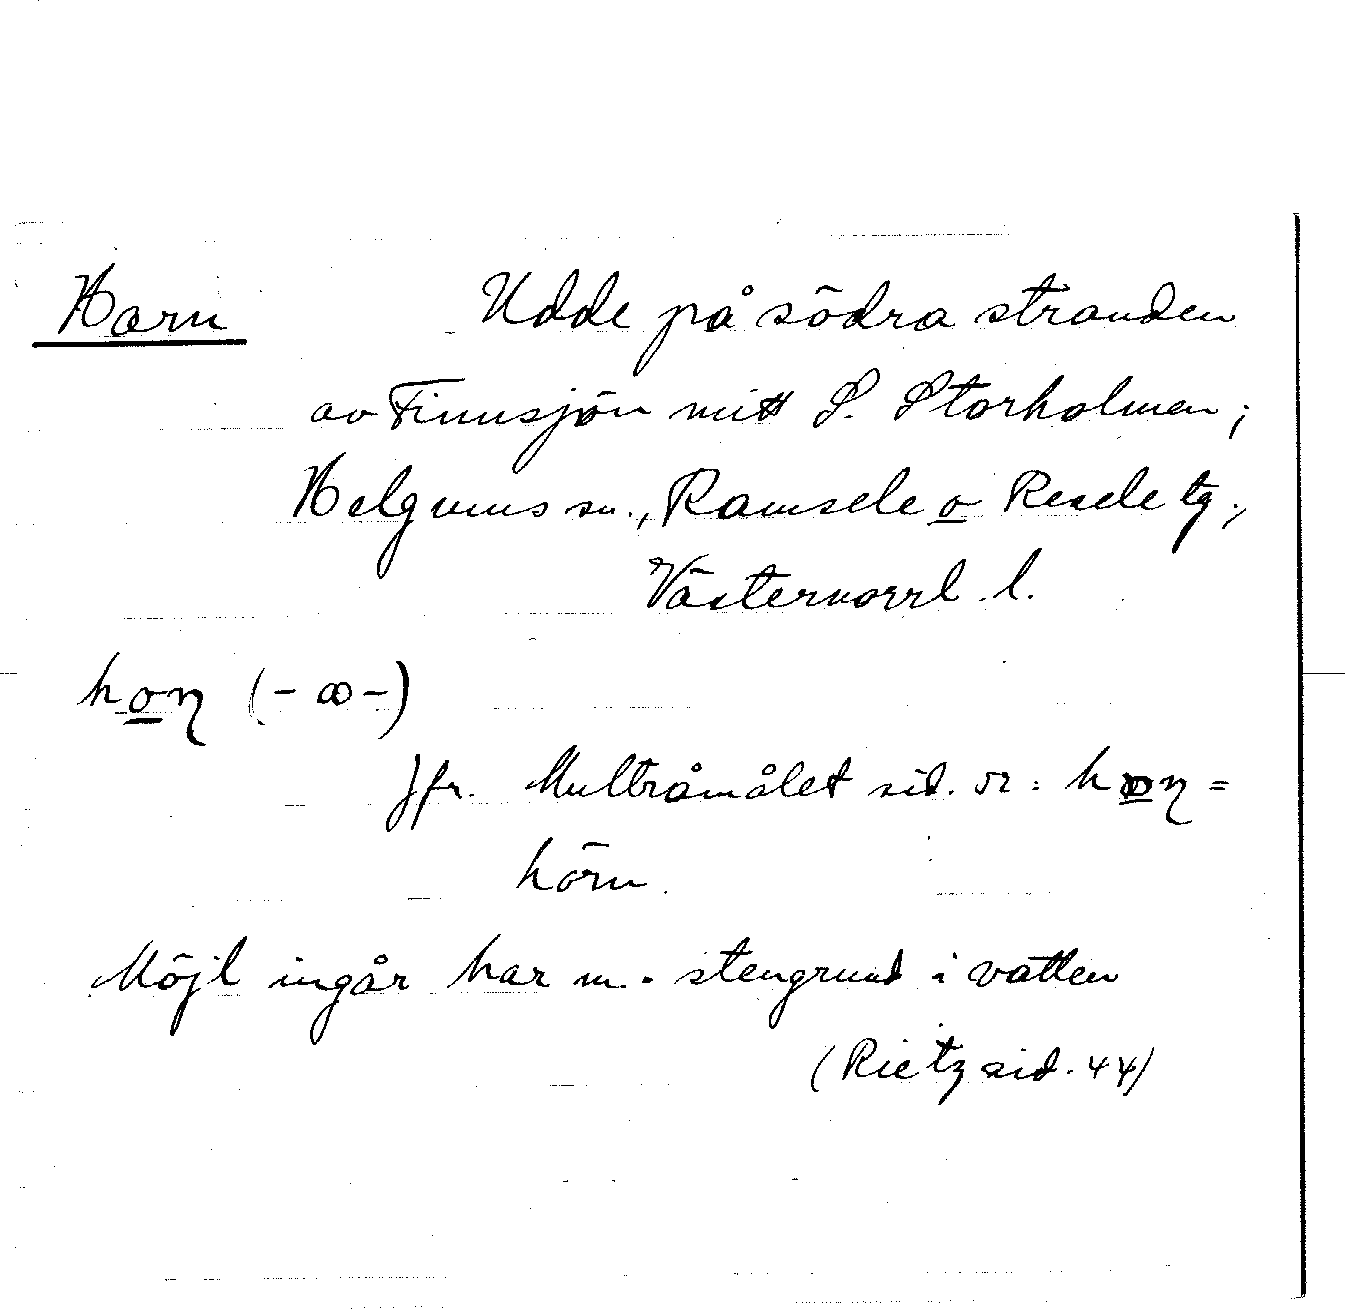 Harn Udde på södra stranden
av Finnsjön mitt S. Storholmen;
Helgums sn., Ramsele o Resele tg.,
Västernorrl. l.
hoη (-ꝏ-)
Jfr. Multråmålet sid. 52: hoη =
hörn.
Möjl ingår har m. stengrund i vatten
(Rietz sid. 44)